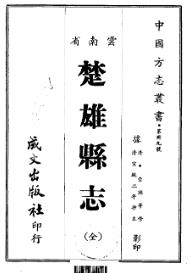 中國方志叢書・第卅九號
據清・崇謙等修
清宣統二年抄本
影印
雲南省
楚雄縣志
(全)
成文出版社印行